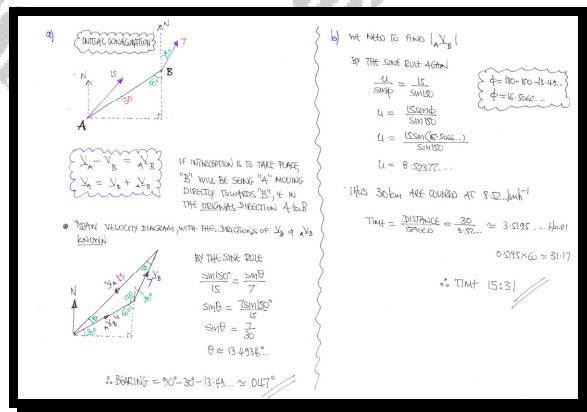 a)
INITIAL CONFIGURATION
N
7
30°
15
B
N
60°
30
A
V_A - V_B = _AV_B
V_A = V_B + _AV_B
IF INTERCEPTION IS TO TAKE PLACE,
"B" WILL BE SEING "A" MOVING
DIRECTLY TOWARDS "B", IE IN
THE ORIGINAL DIRECTION A to B
• DRAW VELOCITY DIAGRAM, WITH THE DIRECTIONS OF V_B & _AV_B
KNOWN
V_A 15
7 V_B
N
30°
_AV_B u
30°
BY THE SINE RULE
sin150° / 15 = sinθ / 7
sinθ = 7sin150° / 15
sinθ = 7/30
θ ≈ 13.4934°..
∴ BEARING = 90° - 30° - 13.49... ≈ 047°
b) WE NEED TO FIND |_AV_B|
BY THE SINE RULE AGAIN
u / sinϕ = 15 / sin150
ϕ = 180 - 150 - 13.49...
ϕ = 16.5066...
u = 15sinϕ / sin150
u = 15sin(16.5066...) / sin150
u = 8.52377....
THUS 30km ARE COVERED AT 8.52..kmh⁻¹
TIME = DISTANCE / SPEED = 30 / 8.52... ≈ 3.5195 .... hours
0.5195×60 ≈ 31.17
∴ TIME 15:31